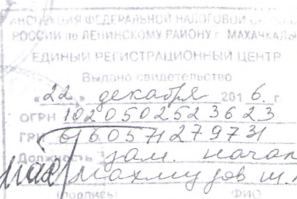 ИНСПЕКЦИЯ ФЕДЕРАЛЬНОЙ НАЛОГОВОЙ
РОССИИ по ЛЕНИНСКОМУ РАЙОНУ г. МАХАЧКАЛЫ
ЕДИНЫЙ РЕГИСТРАЦИОННЫЙ ЦЕНТР
Выдано свидетельство
«22» декабря 2016 г.
ОГРН 1020502523623
ГРН 6160571279731
Должность зам. начал
Махмудов Ш.
(подпись) ФИО